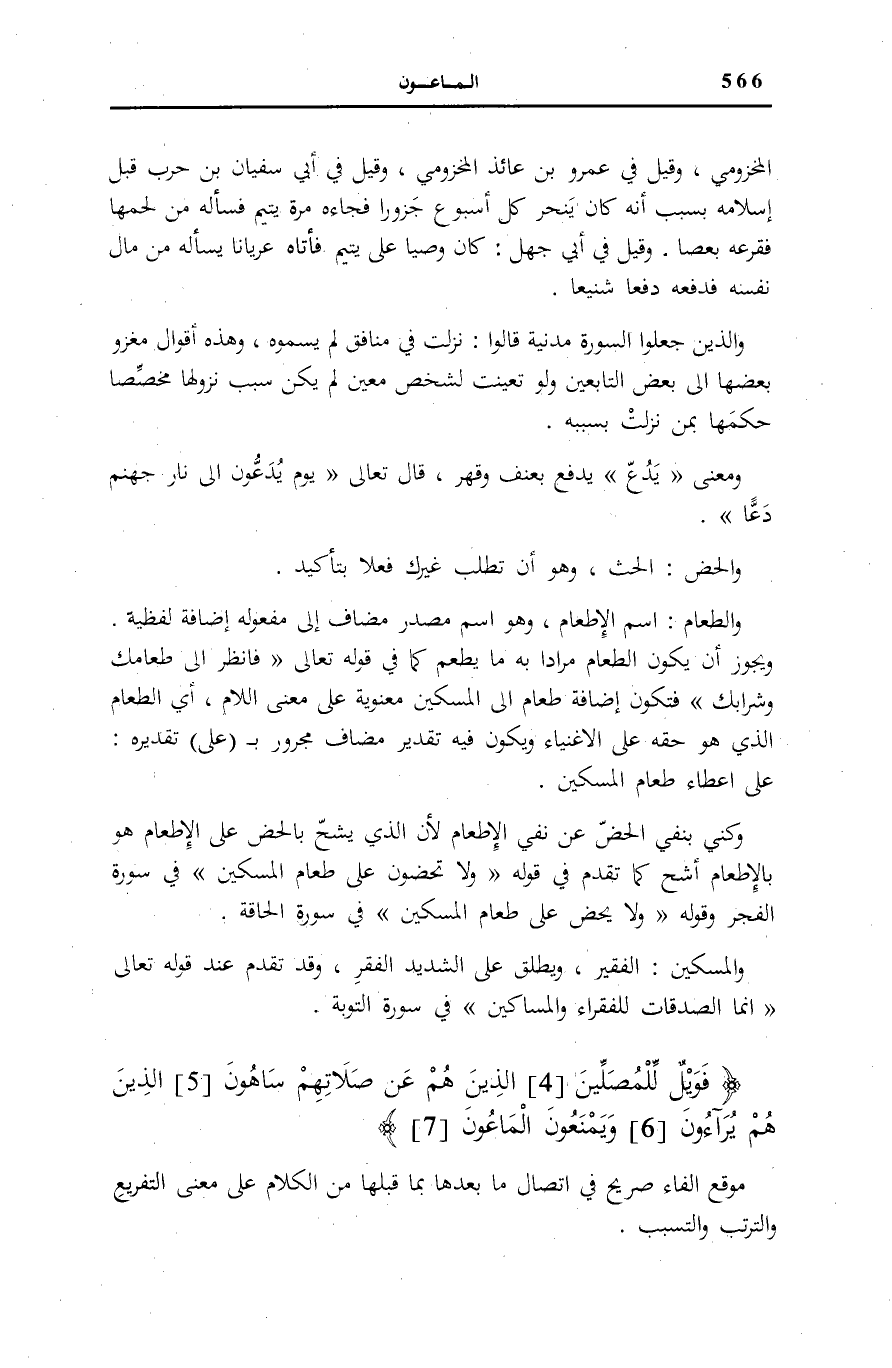 566
الـمـاعـــون
المخزومي ، وقيل في عمرو بن عائذ المخزومي ، وقيل في أبي سفيان بن حرب قبل
إسلامه بسبب أنه كان يَنحر كل أسبوع جَزورا فجاءه مرة يتيم فسأله من لحمها
فقرعه بعصا . وقيل في أبي جهل : كان وصيا على يتيم فأتاه عريانا يسأله من مال
نفسه فدفعه دفعا شنيعا .
والذين جعلوا السورة مدنية قالوا : نزلت في منافق لم يسموه ، وهذه أقوال مغزو
بعضها الى بعض التابعين ولو تعينت لشخص معين لم يكن سبب نزولها مخصِّصا
حكمَها بمن نزلتْ بسببه .
ومعنى « يَدُعّ » يدفع بعنف وقهر ، قال تعالى « يوم يُدَعُّون الى نار جهنم
دَعًّا » .
والحض : الحث ، وهو أن تطلب غيرك فعلا بتأكيد .
والطعام : اسم الإِطعام ، وهو اسم مصدر مضاف إلى مفعوله إضافة لفظية .
ويجوز أن يكون الطعام مرادا به ما يطعم كما في قوله تعالى « فانظر الى طعامك
وشرابك » فتكون إضافة طعام الى المسكين معنوية على معنى اللام ، أي الطعام
الذي هو حقه على الاغنياء ويكون فيه تقدير مضاف مجرور بـ (على) تقديره :
على اعطاء طعام المسكين .
وكني بنفي الحضّ عن نفي الإِطعام لأن الذي يشحّ بالحض على الإِطعام هو
بالإِطعام أشح كما تقدم في قوله « ولا تحضون على طعام المسكين » في سورة
الفجر وقوله « ولا يحض على طعام المسكين » في سورة الحاقة .
والمسكين : الفقير ، ويطلق على الشديد الفقرِ ، وقد تقدم عند قوله تعالى
« انما الصدقات للفقراء والمساكين » في سورة التوبة .
﴿ فَوَيْلٌ لِّلْمُصَلِّينَ [4] الذِينَ هُمْ عَن صَلَاتِهِمْ سَاهُونَ [5] الذِينَ
هُمْ يُرَآءُونَ [6] وَيَمْنَعُونَ الْمَاعُونَ [7] ﴾
موقع الفاء صريح في اتصال ما بعدها بما قبلها من الكلام على معنى التفريعِ
والترتب والتسبب .